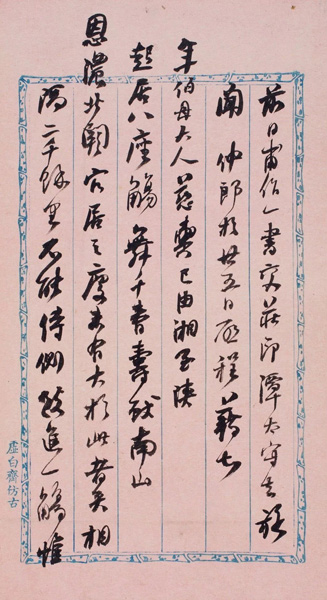 前日甫作一書交莊印潭太守
聞 仲郎於廿五日啟程藉知
年伯母大人慈輿已由湘至陝
起居八座觴舞千春壽獻南山
恩濃北闕官居之慶其有大於此者矣相
隔二千餘里不能侍側敬進一觴惟
虛白齋仿古